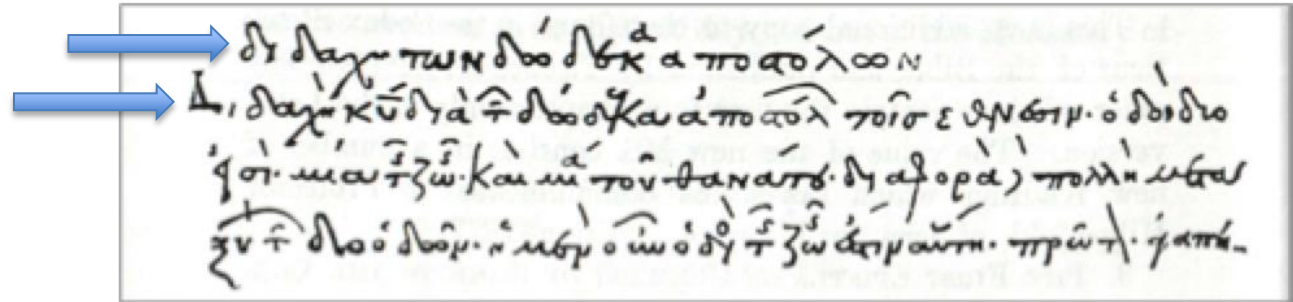 διδαχὴ τῶν δώδεκα ἀποστόλων
Διδαχὴ κ̅υ̅ διὰ τ̑ δώδεκα ἀποστόλ τοῖσ ἔθνεσιν· ὁδοὶ δύο
εἰσὶ· μία τ̑ς ζω̑ς· καὶ μία τοῦ θανάτου· διαφορὰ πολλὴ μετα
ξὺ τ̑ δύο ὁδῶν· ἡ μὲν οὖν ὁδὸς τ̑ς ζω̑ς ἐστιν αὕτη· πρῶτ· ἀγαπή-